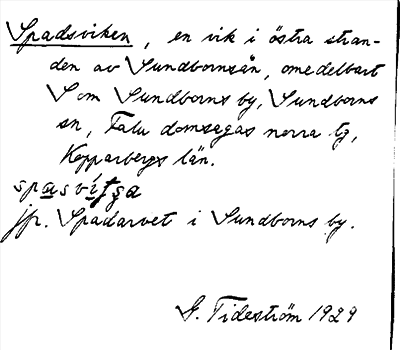 Spadsviken, en vik i östra stran-
den av Sundbornsån, omedelbart
S om Sundborns by, Sundborns
sn, Falu domsagas norra tg,
Kopparbergs län.
jfr. Spadarvet i Sundborns by.
G. Tideström 1929